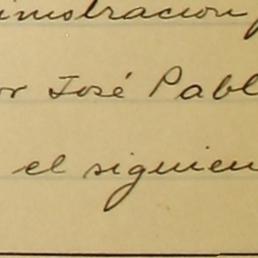 inistracion
or José Pabl
el siguien